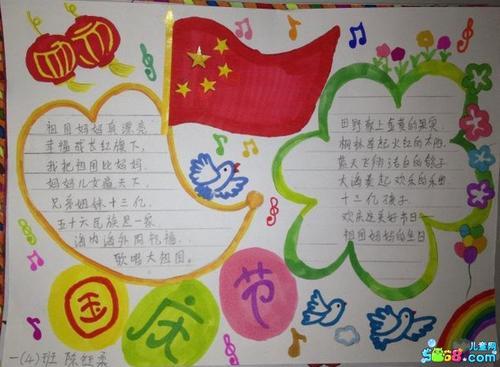 祖国妈妈真漂亮
幸福成长红旗下，
我把祖国比妈妈
妈妈儿女遍天下，
兄弟姐妹十三亿，
五十六民族是一家
海内海外同祝福
歌唱大祖国。
田野献上金黄的果实
枫林举起火红的
蓝天飞翔洁白的鸽子
大海奏起欢乐的乐曲
十三亿孩子
欢庆这美好节日
祖国妈妈的生日
国庆节
一(4)班 陈
儿童网
5068.com